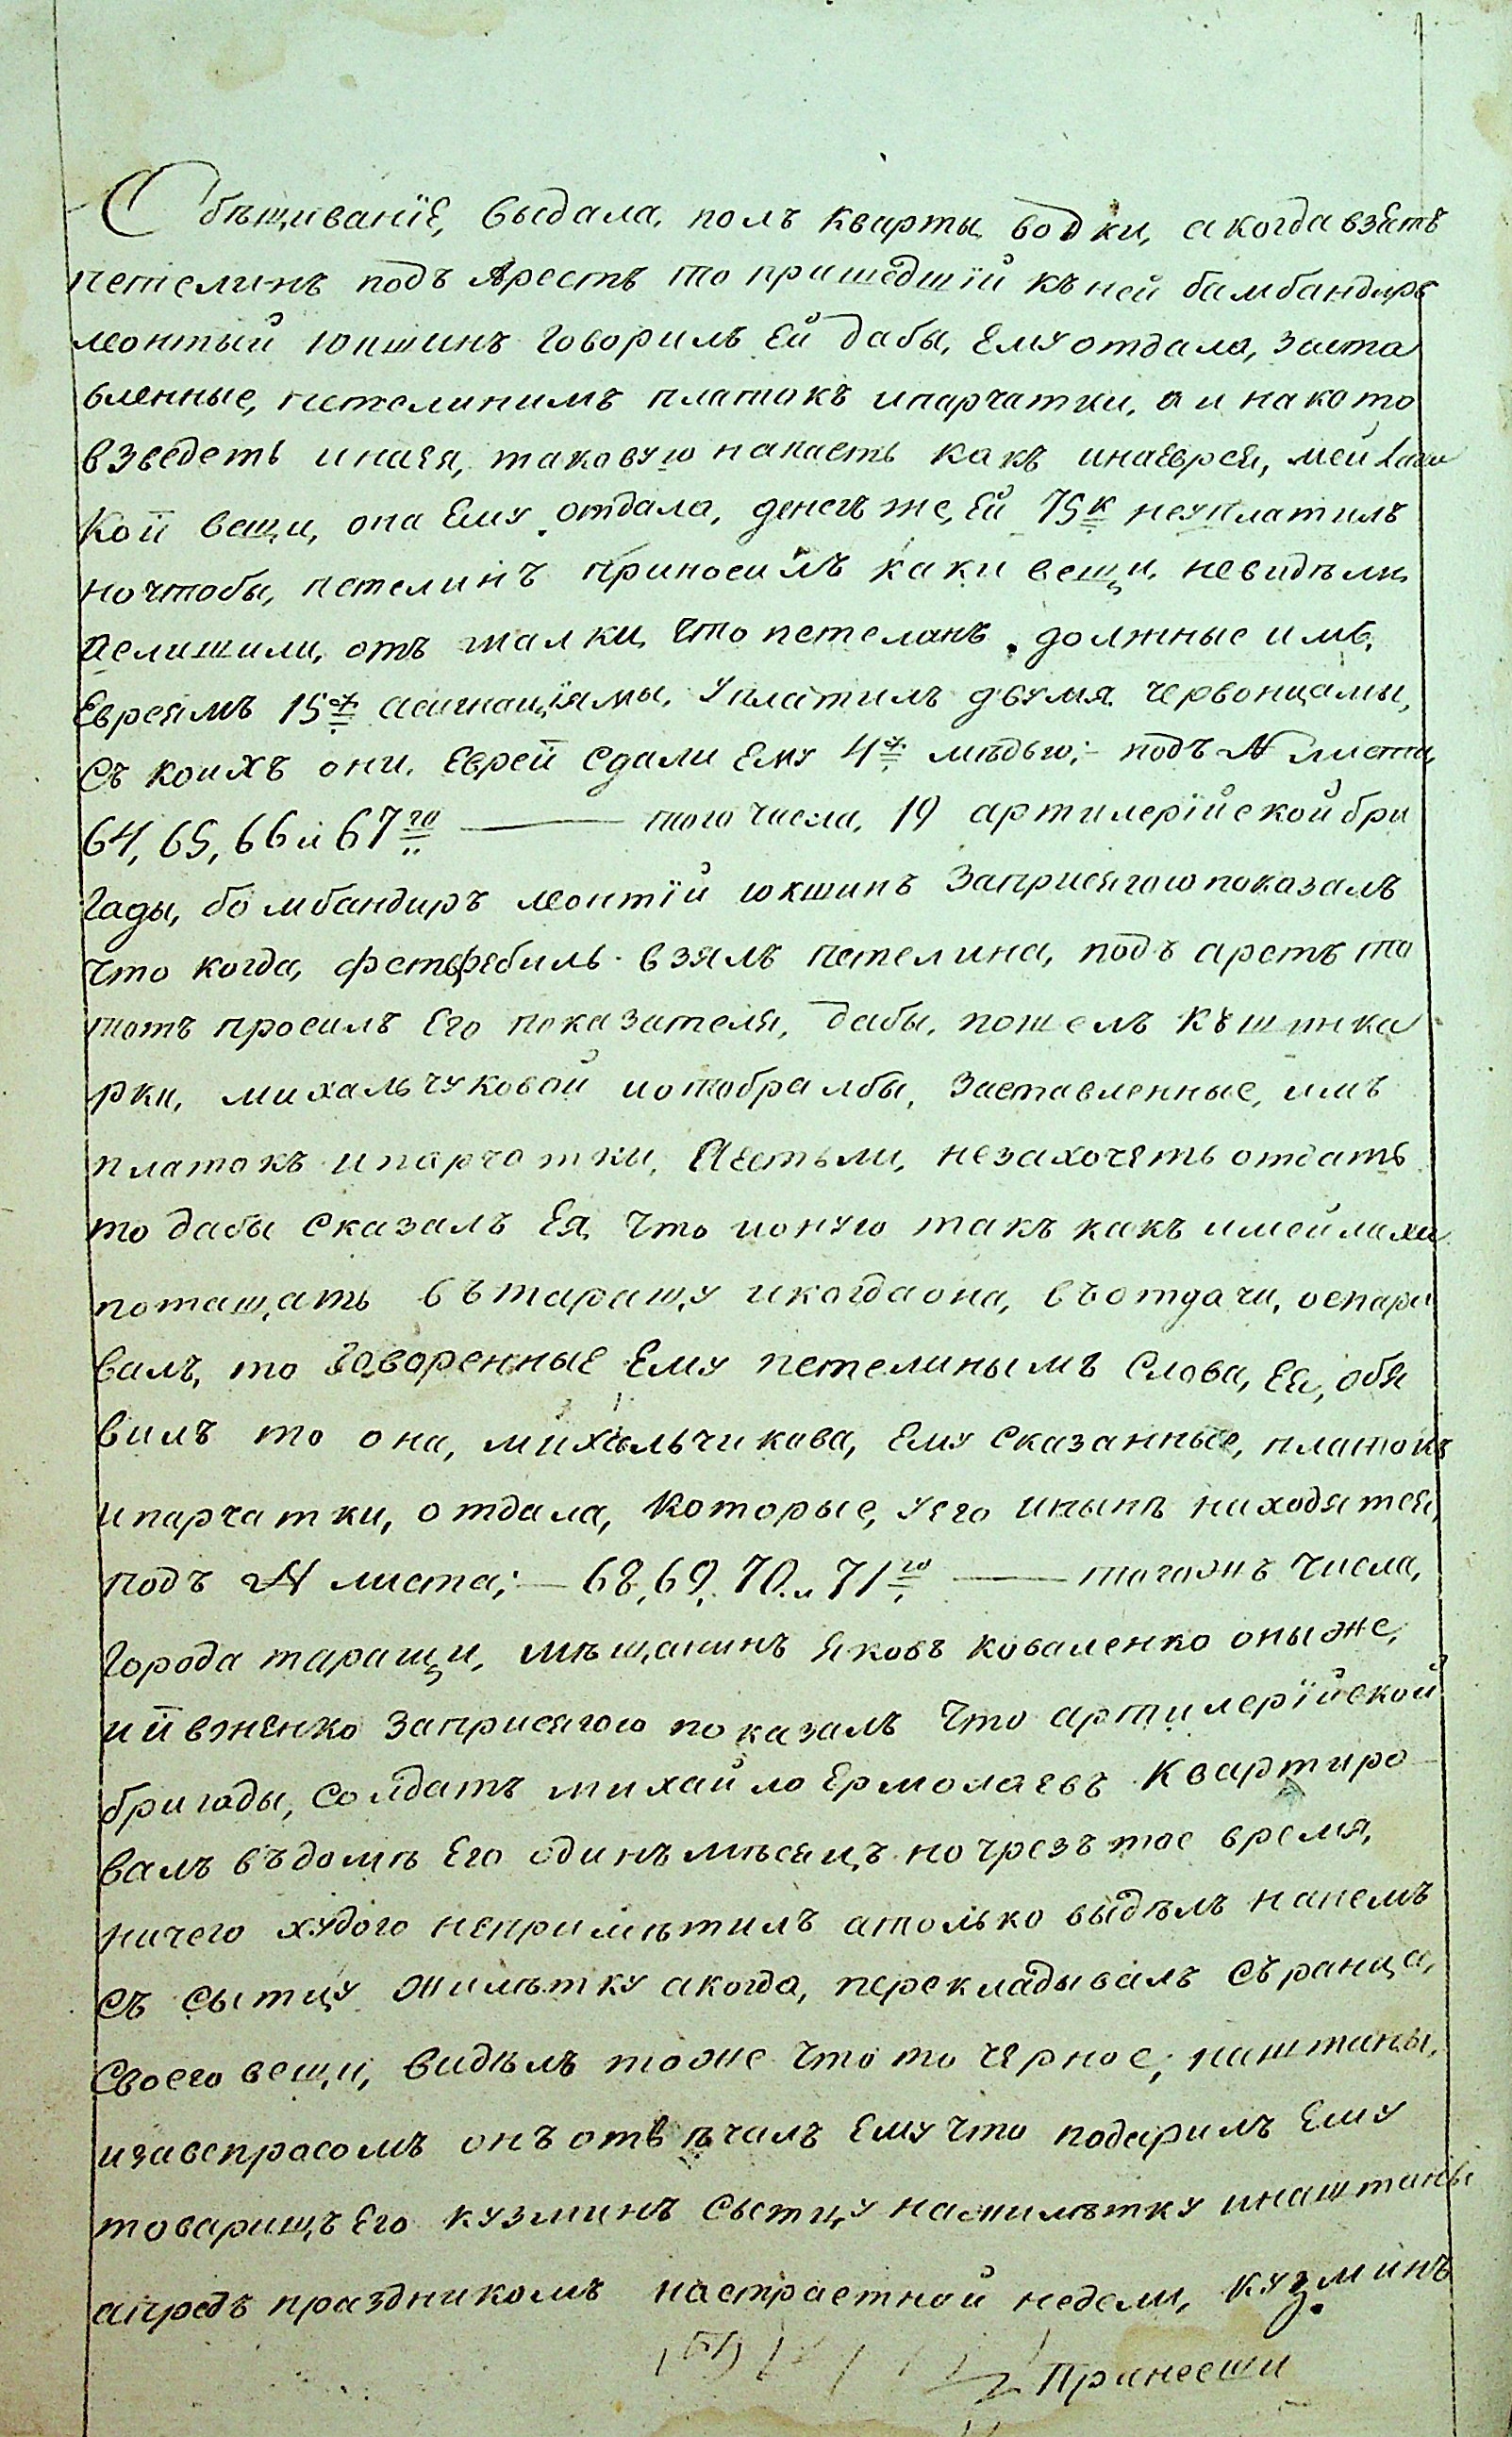 Обѣщиваніе, выдала, полъ кварты водки, а когда взятъ
петелинъ подъ Арестъ то пришедшій къ ней бамбандиръ
леонтый юкшинъ говорилъ Ей дабы, Ему отдала, заста
вленные, петелинимъ платокъ ипарчатки, а и на кото
взведеть инаея, таковую напасть какъ инаеврея, мей
кой вещи, она Ему отдала, денегъ же, Ей 75 к неуплатилъ
ночтобы, петелинъ приносилъ каки вещи, невидѣли,
Аслишили, отъ малки, что петеланъ должные имъ,
Евреямъ 15 асигнаціямы, Уплатилъ двумя червонцамы,
съ коихъ они, Еврей сдали Ему 4 мѣдью; подъ № листа,
64, 65, 66 и 67го — того числа, 19 артилерійской бри
гады, бомбандиръ леонтій юкшинъ Заприсягою показалъ
что когда, фетьфебиль взялъ петелина, подъ аретъ то
тотъ просилъ Его показателя, дабы, пошелъ къ шинка
рки, михальчуковой иотобралбы, заставленные, имъ
платокъ ипарчатки, Аестьли, незахочеть отдать
то дабы сказалъ Ея, что ионую такъ какъ имейлаха
поташ,ать въ таращу икогдаона, въотдачи, оспари
валъ, то говоренные Ему петелинымъ слова, Ея, обя
вилъ то она, михальчикова, Ему сказанные, платокъ
ипарчатки, отдала, которые, уего инынѣ находятся,
подъ № листа; — 68, 69, 70 и 71го — тогожъ числа,
города таращи, мѣщанинъ яковъ коваленко оныже,
и ивженко заприсягою показалъ что артилерійской
бригады, солдатъ михайло Ермолаевъ квартиро
валъ въдомѣ Его одинъ мѣсяцъ но чрезъ тое время,
ничего худого неприметилъ атолько выдѣлъ нанемъ
съ сытцу жилѣтку акогда, перекладывалъ съранца,
своего вещи, видѣлъ тоже что то чярное, наштаны,
изавспросомъ онъ отвѣчалъ Ему что подарилъ Ему
товарищъ Его кузминъ сытцу нажилѣтку инаштаны
апредъ праздникомъ настрастной недели, кузминъ
Принесши